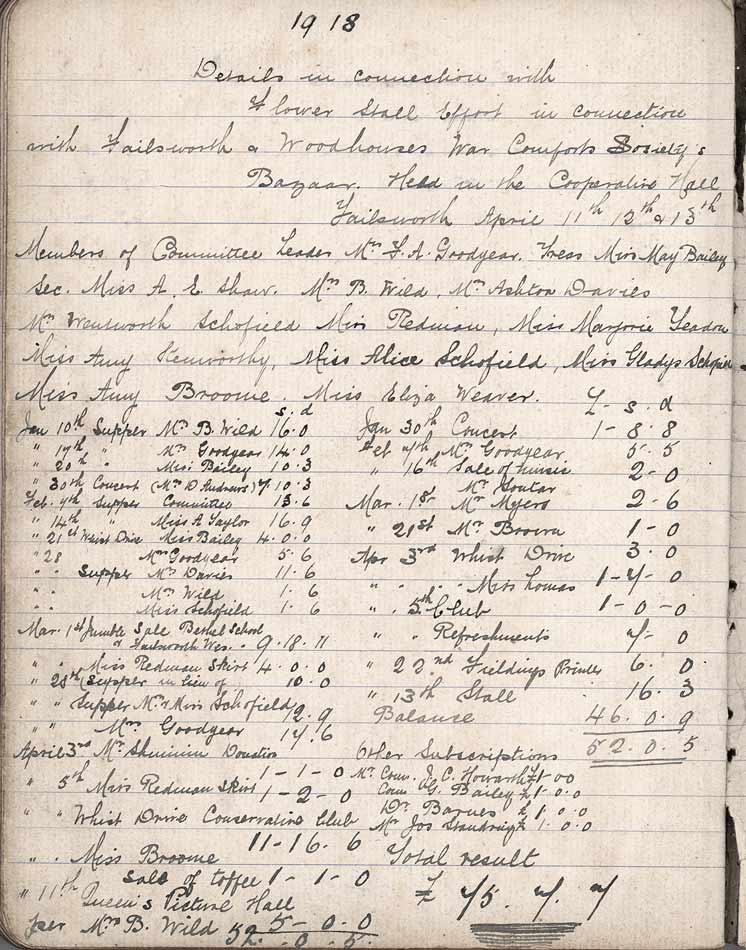 1918
Details in connection with
Flower Stall Effort in connection
with Failsworth & Woodhouses War Comforts Society's
Bazaar. Held in the Cooperative Hall
Failsworth April 11th 12th & 13th
Members of Committee Leader Mrs F. A. Goodyear. Tress Miss May Bailey
Sec. Miss A. E Shaw. Mrs B. Wild. Mrs Ashton Davies
Mrs Wentworth Schofield Miss Redman, Miss Marjorie Yeadon
Miss Amy Kenworthy, Miss Alice Schofield, Miss Gladys Schofield
Miss Amy Broome. Miss Eliza Weaver.
s. d
Jan 10th Supper Mrs B. Wild 16.0
" 17th " Mrs Goodyear 14.0
" 20th " Miss Bailey 10.3
" 30th Concert (Mrs D Andrews) 7. 10.3
Feb. 7th Supper Committee 13.6
" 14th " Miss A Taylor 16.9
" 21st Whist Drive Miss Bailey 4.0.0
" 28 Mrs Goodyear 5.6
" " Supper Mrs Davies 11.6
" " Mrs Wild 1.6
" " Miss Schofield 1.6
Mar. 1st Jumble Sale Bethel School
" Failsworth Wes. . 9.18.11
" " Miss Redman Skirt 4.0.0
" 28th (Supper in lieu of 10.0
" " Supper Mrs & Miss Schofield 12.9
" " Mrs Goodyear 17.6
April 3rd Mr Donation
1-1-0
" 5th Miss Redman Skirt 1-2-0
" " Whist Drive Conservative Club
11-16.6
" . Miss Broome
Sale of toffee 1-1-0
" 11th Queen's Picture Hall
per Mrs B. Wild 5-0-0
52.-0.5.
£- s. d
Jan 30th Concert 1-8.8
Feb 7th Mrs Goodyear 5.5
" 16th Sale of music 2-0
Mr Soutar
Mar. 1st Mr Myers 2-6
" 21st Mr Brown 1-0
Apr 3rd Whist Drive 3.0
" . . . Miss Lomas 1-7-0
" . 5th Club 1-0-0
" " Refreshments 7-0
" 22nd Fieldings Printer 6.0
" 13th Stall 16.3
Balance 46.0.9
52.0.5
Other Subscriptions
Mr Coun. J. C. Howarth £1-00
Coun G. Bailey £1-0.0
Dr Barnes £1.0.0
Mr Jos £1.0.0
Total result
£ 75. 7. 7